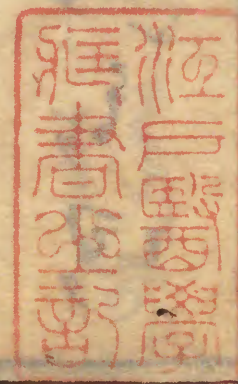 江戸醫學
蔵書之記